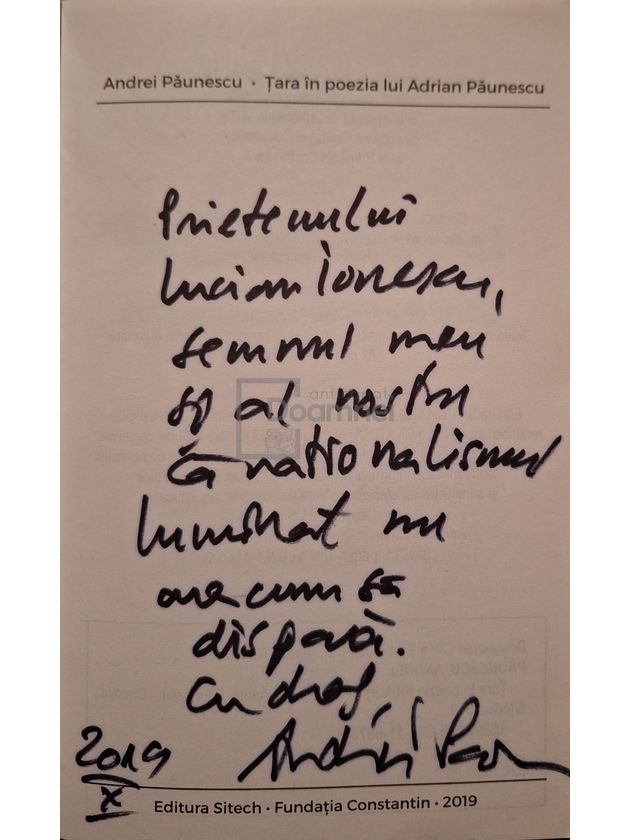 Andrei Păunescu • Țara în poezia lui Adrian Păunescu
Prietenului
Lucian Ionescu,
semnul meu
și al nostru
că naționalismul
luminat nu
are cum să
dispară.
Cu drag,
Andrei Păun
2019
X
anticariat
Doamnei
Editura Sitech • Fundația Constantin • 2019